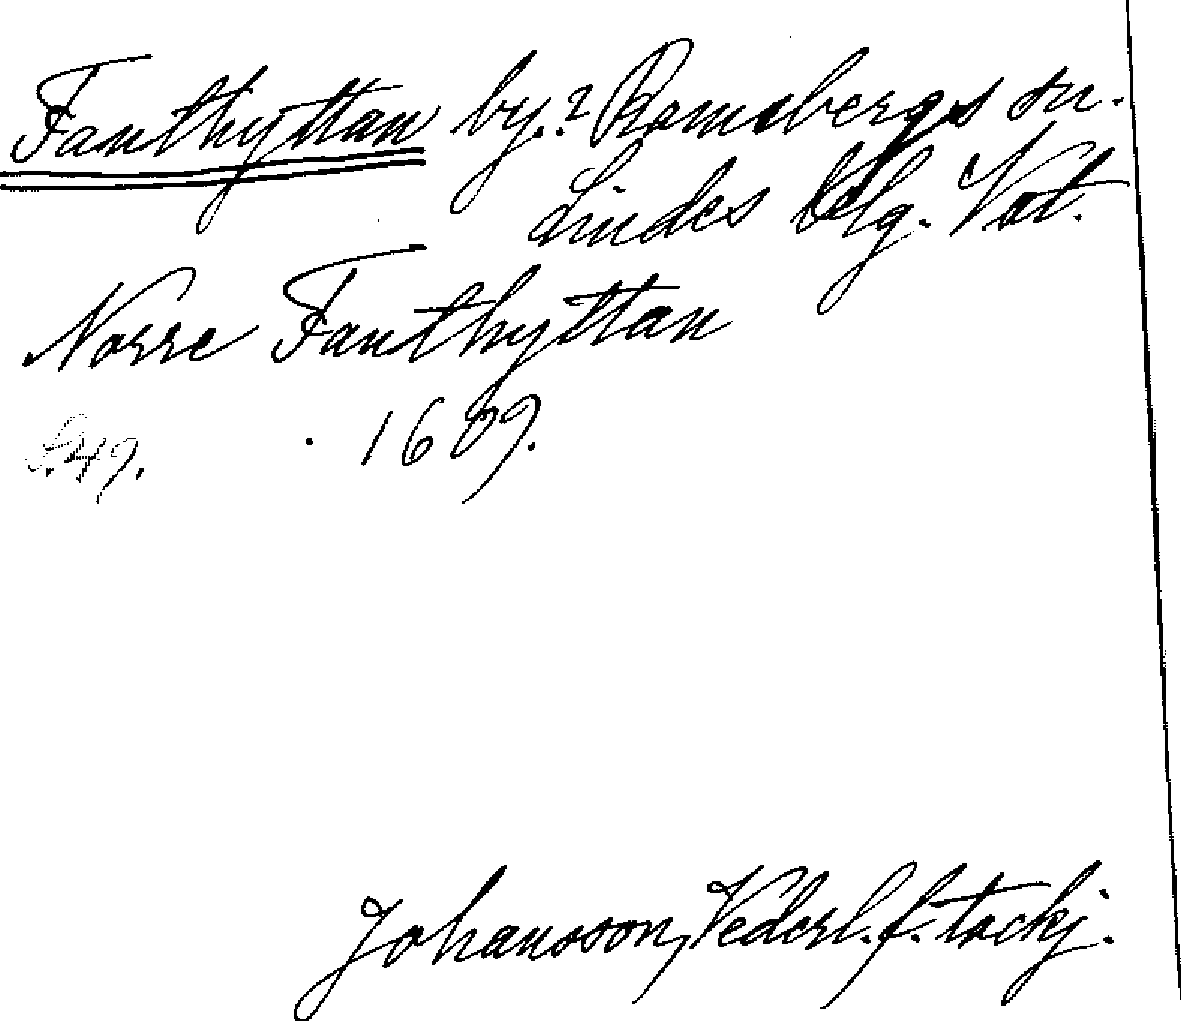 Fanthyttan by.? Ramsbergs sn.
Lindes blg. Vat.
Norre Fanthyttan
s. 49. 1609.
Johansson, Vederl. f. tackj.